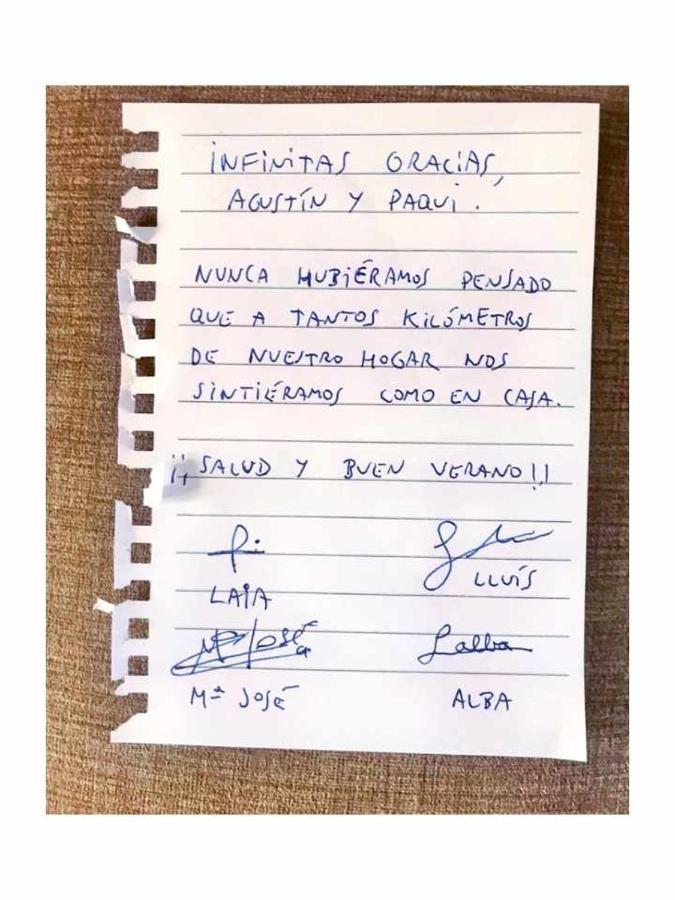 INFINITAS GRACIAS,
AGUSTÍN Y PAQUI.
NUNCA HUBIÉRAMOS PENSADO
QUE A TANTOS KILÓMETROS
DE NUESTRO HOGAR NOS
SINTIÉRAMOS COMO EN CASA.
¡¡SALUD Y BUEN VERANO!!
LAIA
LLUÍS
Mª José
Lalba
Mª JOSÉ
ALBA